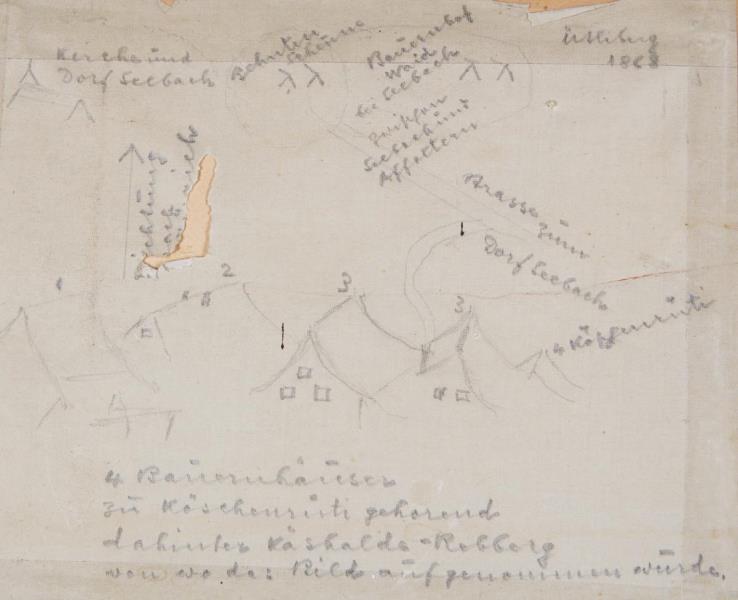 Kirche und
Dorf Seebach
Scheune
Bauernhof
Waid
bei Seebach
zwischen
Seebach und
Affoltern
Ütliberg
1868
Richtung
nach
Strasse zum
Dorf Seebach
1
2
3
3
4 Köschenrüti
4 Bauernhäuser
zu Köschenrüti gehörend
dahinter Käshalde-Rebberg
von wo das Bild aufgenommen würde.